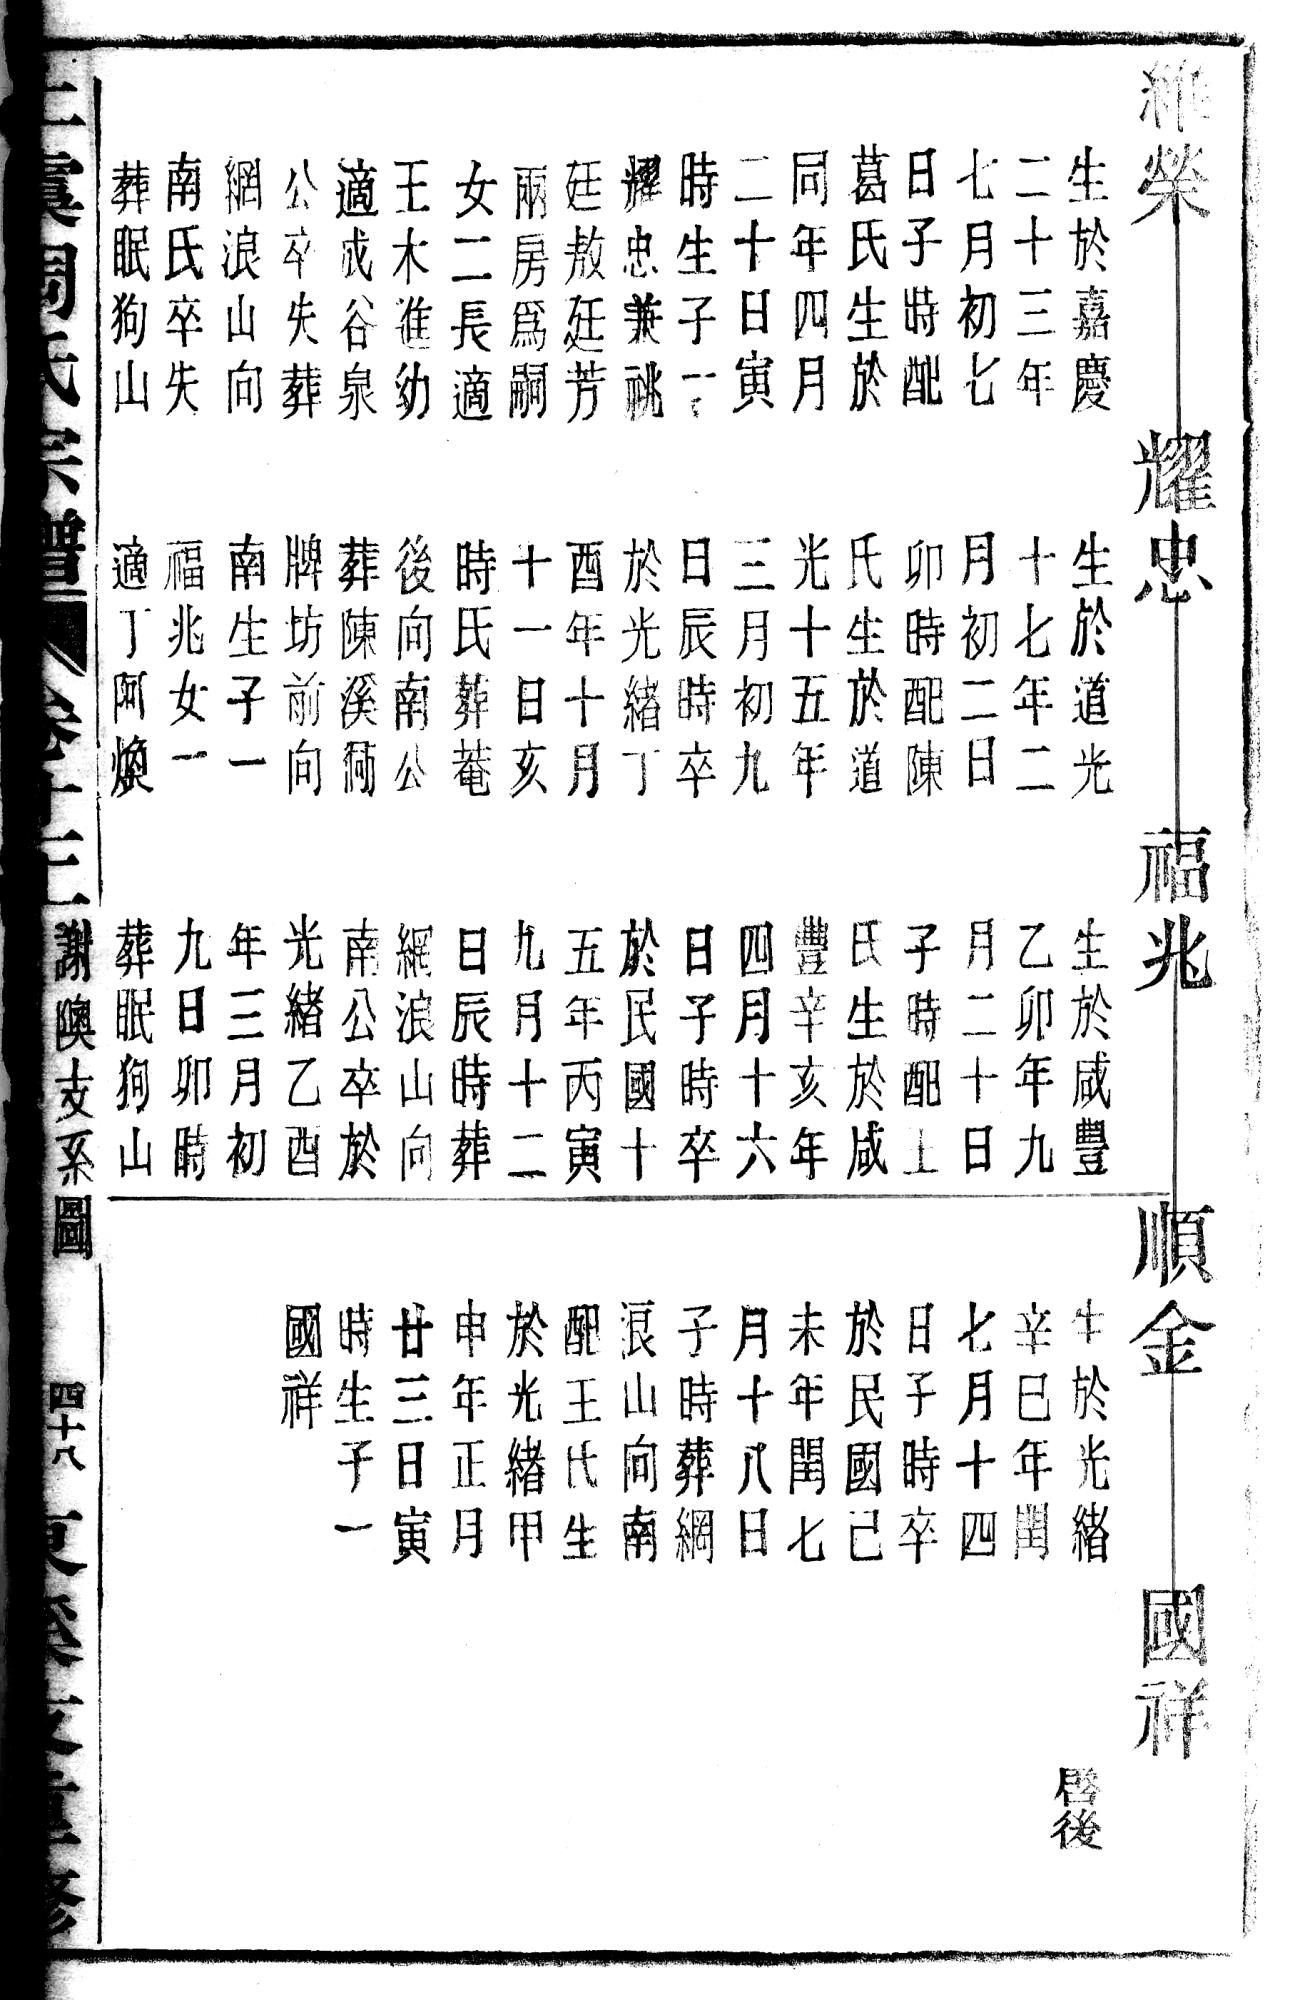 維榮
生於嘉慶
二十三年
七月初七
日子時配
葛氏生於
同年四月
二十日寅
時生子一
耀忠兼祧
廷敖廷芳
兩房爲嗣
女二長適
王木進幼
適成谷泉
公卒失葬
網浪山向
南氏卒失
葬眠狗山
耀忠
生於道光
十七年二
月初二日
卯時配陳
氏生於道
光十五年
三月初九
日辰時卒
於光緒丁
酉年十月
十一日亥
時氏葬菴
後向南公
葬陳溪
牌坊前向
南生子一
福兆女一
適丁阿煥
福兆
生於咸豐
乙卯年九
月二十日
子時配上
氏生於咸
豐辛亥年
四月十六
日子時卒
於民國十
五年丙寅
九月十二
日辰時葬
網浪山向
南公卒於
光緒乙酉
年三月初
九日卯時
葬眠狗山
順金
生於光緒
辛巳年閏
七月十四
日子時卒
於民國己
未年閏七
月十八日
子時葬網
浪山向南
配王氏生
於光緒甲
申年正月
廿三日寅
時生子一
國祥
國祥
啓後
上虞周氏宗譜 卷十三
謝隩支系圖
四十八
東溪支重修